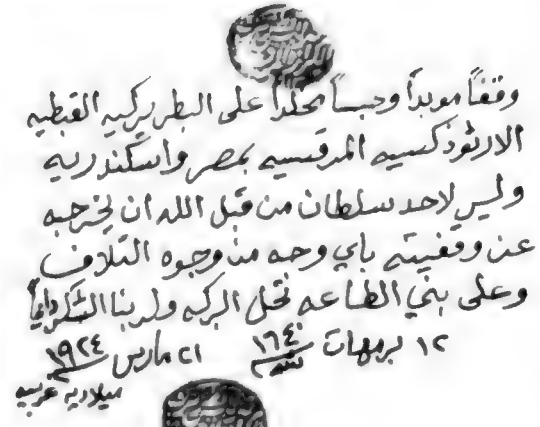 وقفاً موبداً وحبساً مخلداً على البطريركيه القبطيه
الارثوذكسيه المرقسيه بمصر واسكندريه
وليس لاحد سلطان من قبل الله ان يخرجه
عن وقفيته باي وجه من وجوه التلاف
وعلى بني الطاعه تحل البركه ولربنا الشكر دايماً
١٢ برمهات سنة ١٦٤٠ ٢١ مارس سنة ١٩٢٤
ميلاديه غربيه